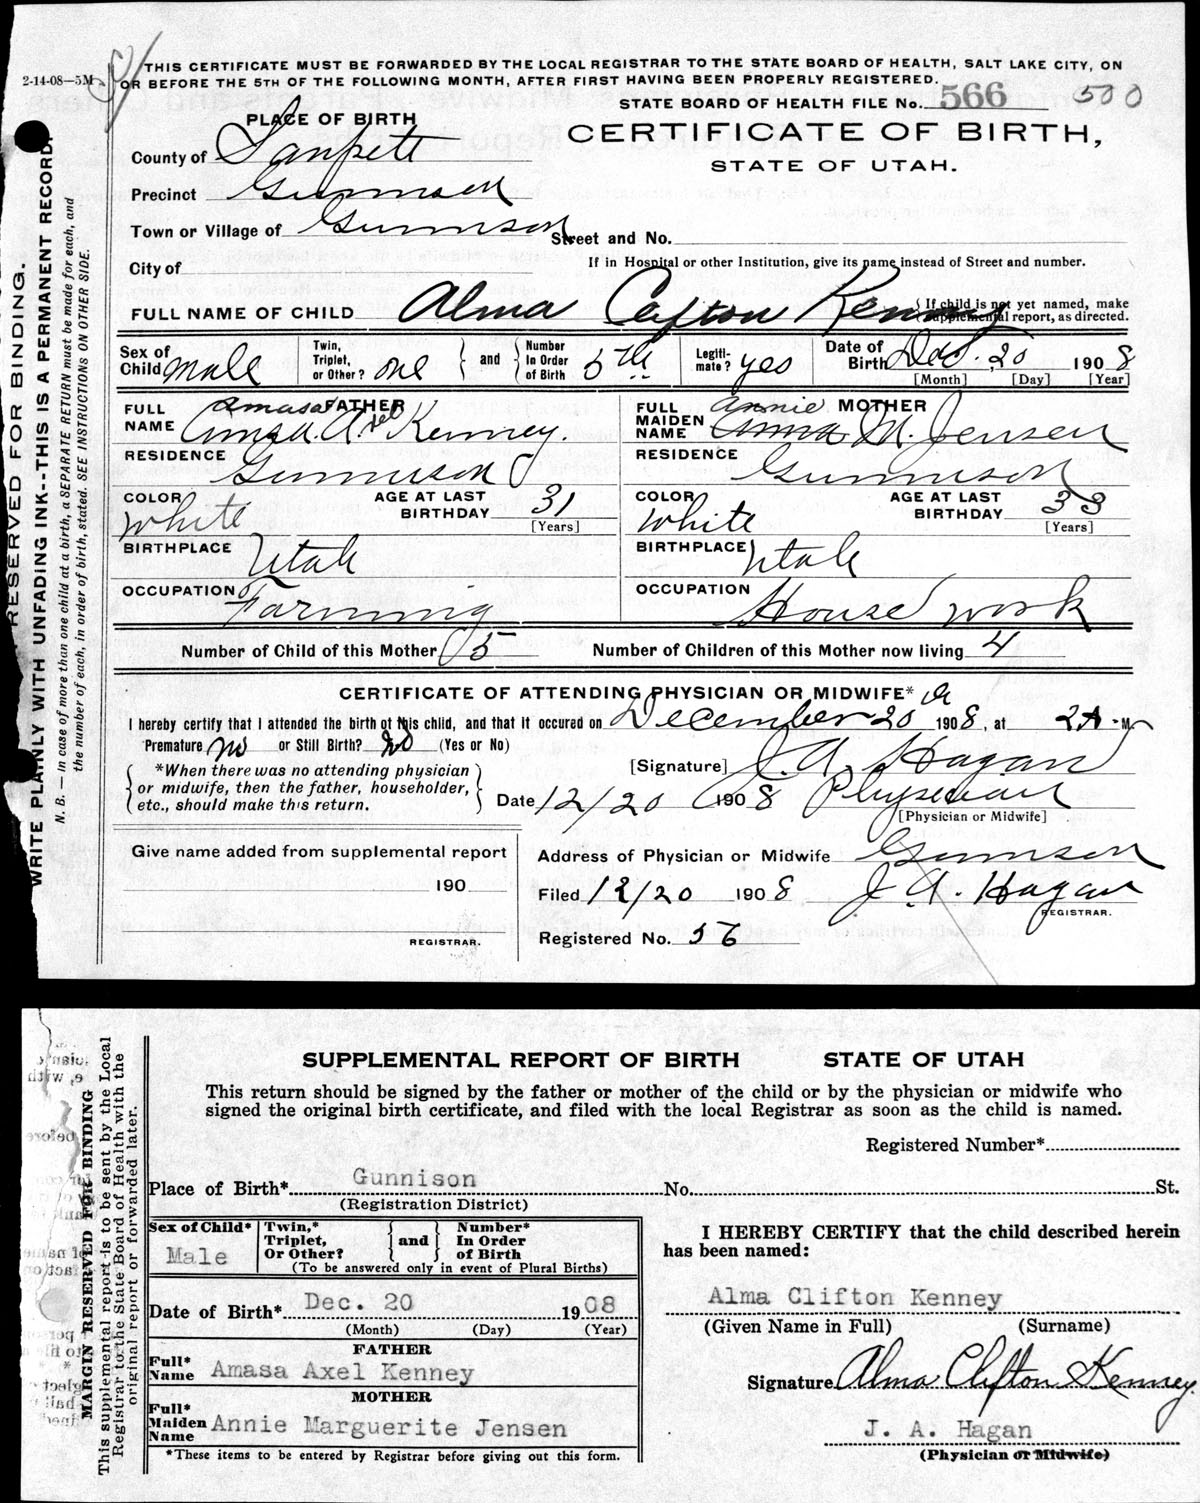 2-14-08—5M
THIS CERTIFICATE MUST BE FORWARDED BY THE LOCAL REGISTRAR TO THE STATE BOARD OF HEALTH, SALT LAKE CITY, ON
OR BEFORE THE 5TH OF THE FOLLOWING MONTH, AFTER FIRST HAVING BEEN PROPERLY REGISTERED.
STATE BOARD OF HEALTH FILE No. 566 500
PLACE OF BIRTH
CERTIFICATE OF BIRTH,
STATE OF UTAH.
County of Sanpete
Precinct Gunnison
Town or Village of Gunnison
Street and No.
City of
If in Hospital or other Institution, give its name instead of Street and number.
FULL NAME OF CHILD Alma Clifton Kenney
{If child is not yet named, make
supplemental report, as directed.
Sex of Child Male
Twin, Triplet, or Other? one } and { Number In Order of Birth 5th
Legitimate? yes
Date of Birth Dec. 20 1908
[Month] [Day] [Year]
FATHER
FULL NAME Amasa Amsa. A.xel Kenney.
RESIDENCE Gunnison
COLOR White
AGE AT LAST BIRTHDAY 31
[Years]
BIRTHPLACE Utah
OCCUPATION Farming
MOTHER
FULL MAIDEN NAME Annie Anna M. Jensen
RESIDENCE Gunnison
COLOR White
AGE AT LAST BIRTHDAY 33
[Years]
BIRTHPLACE Utah
OCCUPATION House work
Number of Child of this Mother 5
Number of Children of this Mother now living 4
CERTIFICATE OF ATTENDING PHYSICIAN OR MIDWIFE*
I hereby certify that I attended the birth of this child, and that it occured on December 20 1908, at 2 A. M.
Premature no or Still Birth? no (Yes or No)
{*When there was no attending physician
or midwife, then the father, householder,
etc., should make this return.}
[Signature] J. A. Hagan
Date 12/20 1908 Physician
[Physician or Midwife]
Give name added from supplemental report
190
REGISTRAR.
Address of Physician or Midwife Gunnison
Filed 12/20 1908 J. A. Hagan
REGISTRAR.
Registered No. 56
RESERVED FOR BINDING.
WRITE PLAINLY WITH UNFADING INK--THIS IS A PERMANENT RECORD.
N. B. — In case of more than one child at a birth, a SEPARATE RETURN must be made for each, and
the number of each, in order of birth, stated. SEE INSTRUCTIONS ON OTHER SIDE.
SUPPLEMENTAL REPORT OF BIRTH STATE OF UTAH
This return should be signed by the father or mother of the child or by the physician or midwife who
signed the original birth certificate, and filed with the local Registrar as soon as the child is named.
Registered Number*
Place of Birth* Gunnison No. St.
(Registration District)
Sex of Child* Male
Twin,* Triplet, Or Other? } and { Number* In Order of Birth
(To be answered only in event of Plural Births)
Date of Birth* Dec. 20 1908
(Month) (Day) (Year)
FATHER
Full* Name Amasa Axel Kenney
MOTHER
Full* Maiden Name Annie Marguerite Jensen
*These items to be entered by Registrar before giving out this form.
I HEREBY CERTIFY that the child described herein
has been named:
Alma Clifton Kenney
(Given Name in Full) (Surname)
Signature Alma Clifton Kenney
J. A. Hagan
(Physician or Midwife)
MARGIN RESERVED FOR BINDING
This supplemental report is to be sent by the Local
Registrar to the State Board of Health with the
original report or forwarded later.